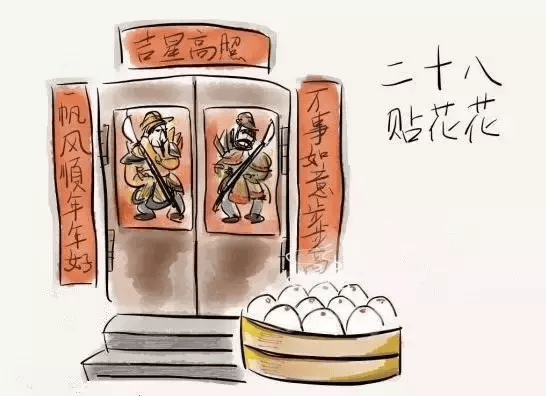 吉星高照
一帆风順年年好
万事如意步步高
二十八
贴花花